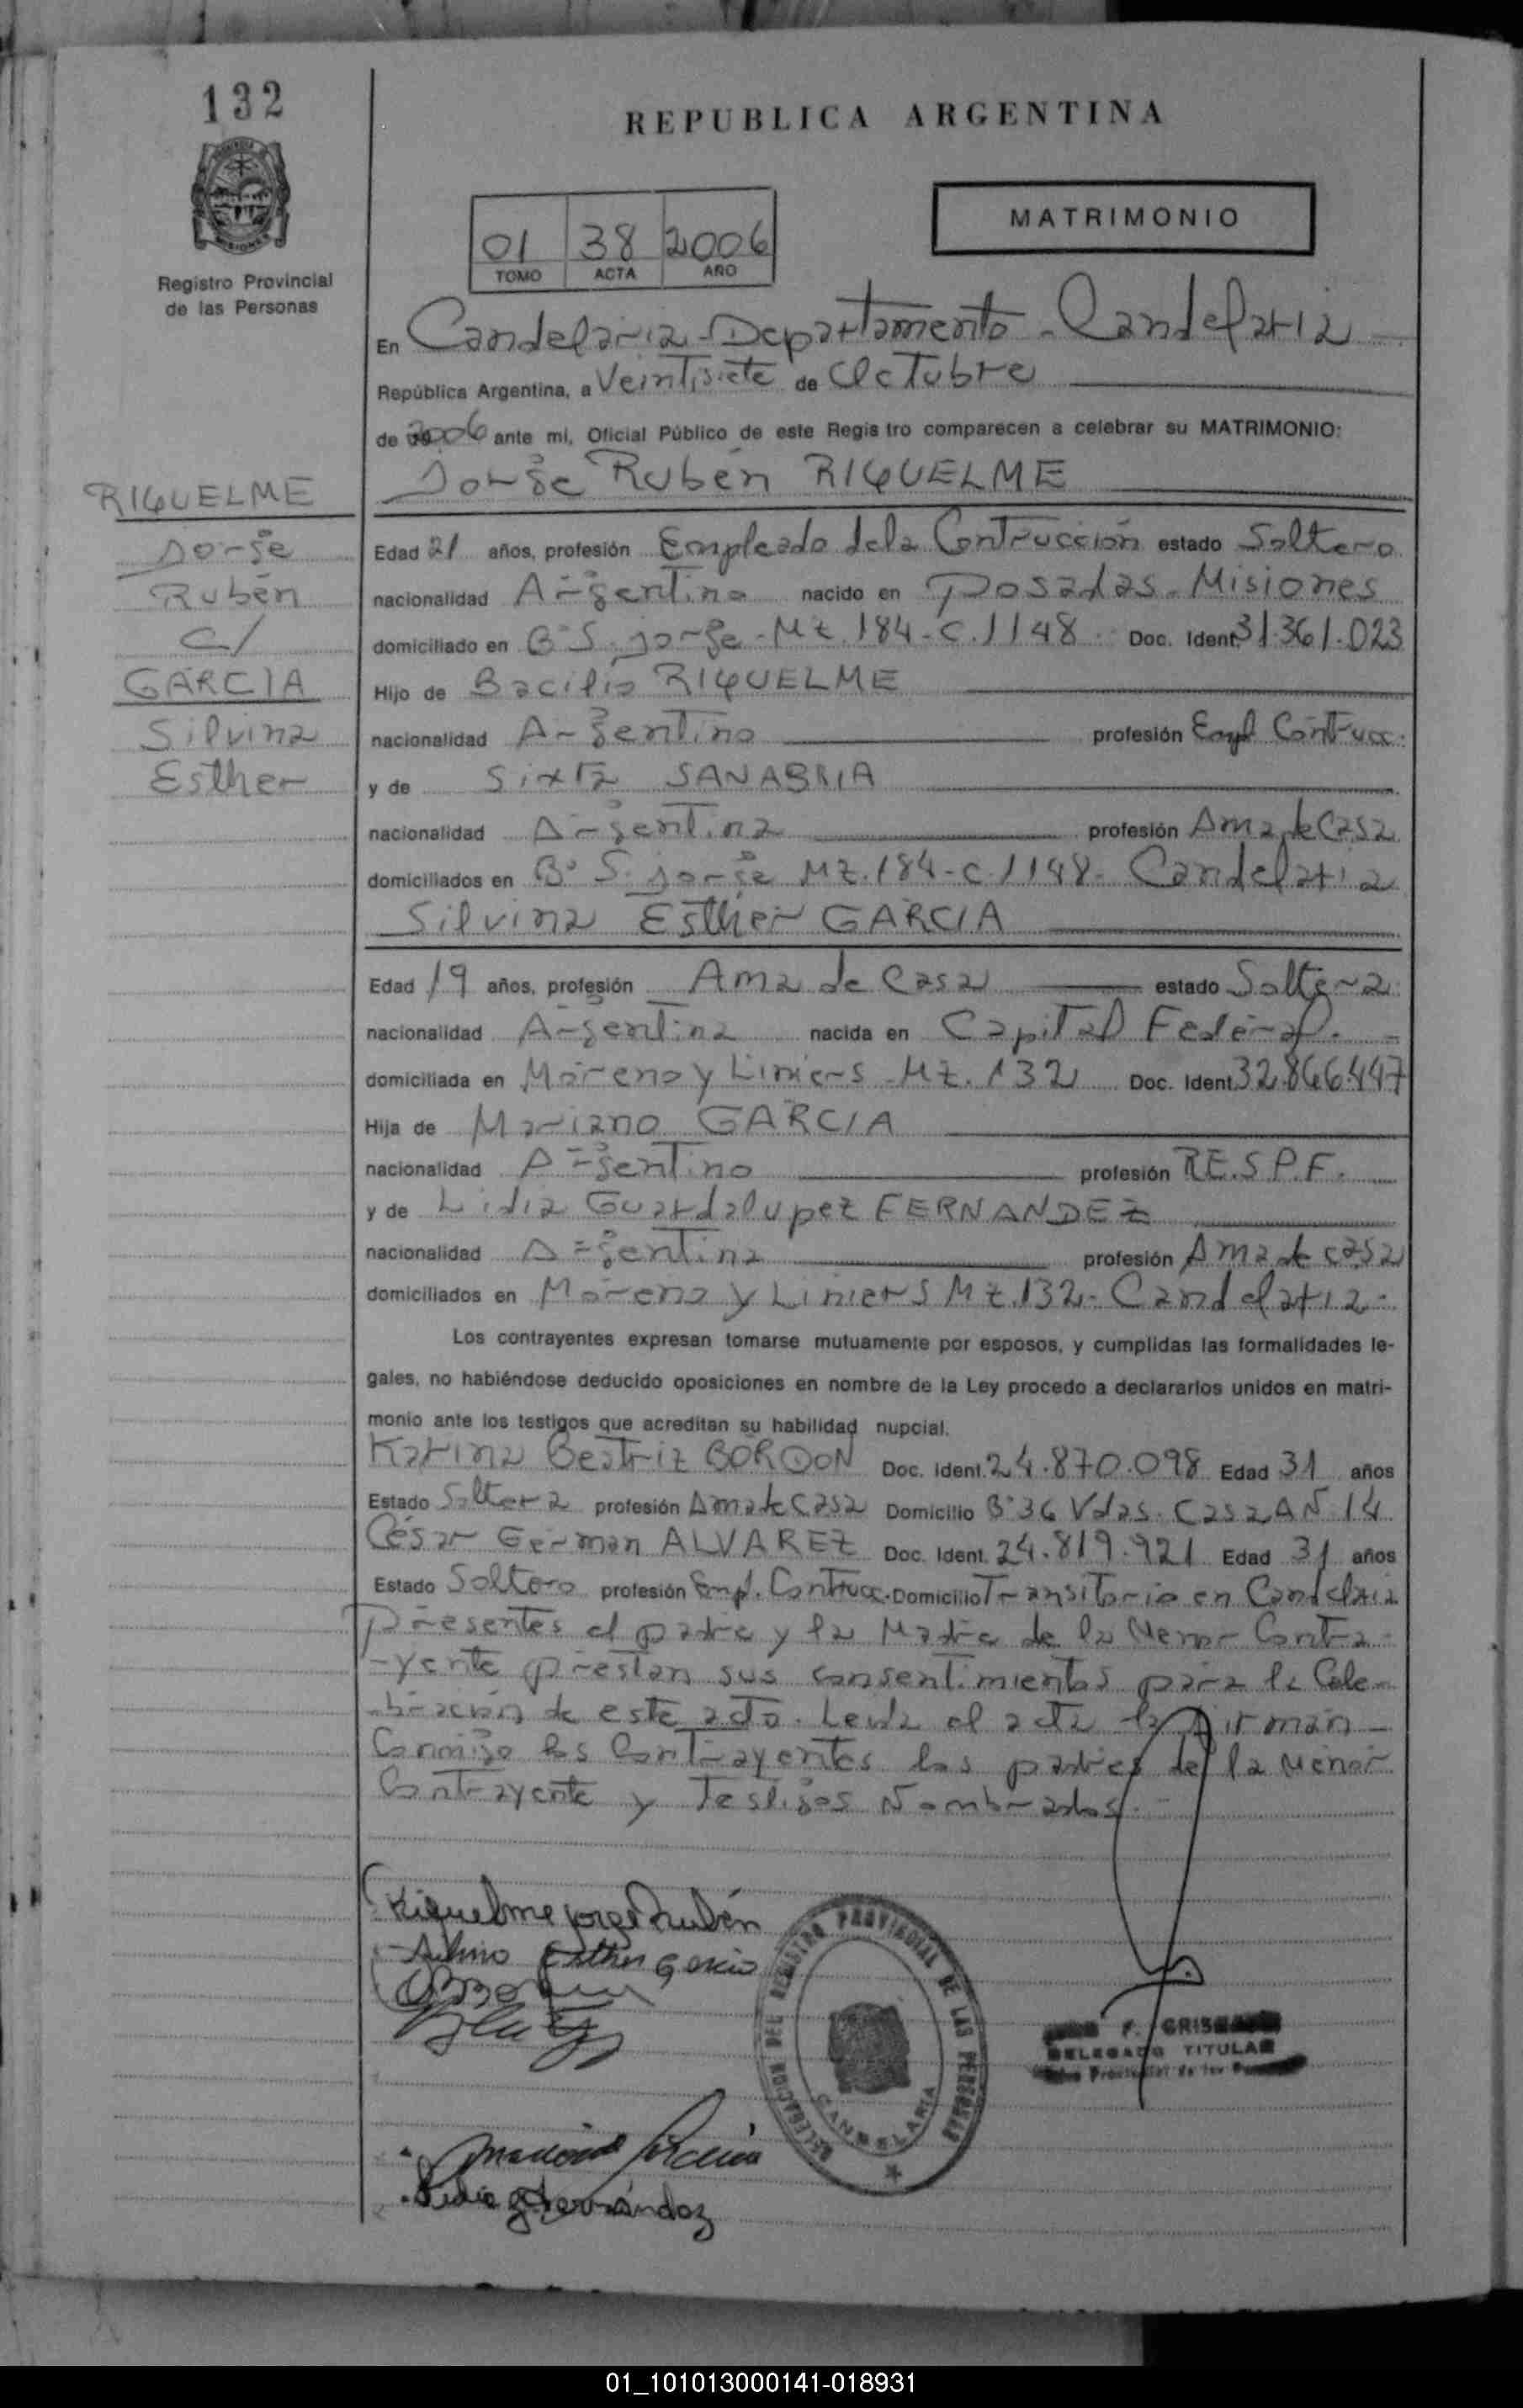 132
REPUBLICA ARGENTINA
MATRIMONIO
01 38 2006
TOMO ACTA AÑO
Registro Provincial
de las Personas
En Candelaria - Departamento - Candelaria
República Argentina, a Veintisiete de Octubre
de 2006 ante mí, Oficial Público de este Regis tro comparecen a celebrar su MATRIMONIO:
Jorge Rubén RIQUELME
RIQUELME
Jorge
Rubén
c/
GARCIA
Silvina
Esther
Edad 21 años, profesión Empleado de la Contrucción estado Soltero
nacionalidad Argentino nacido en Posadas - Misiones
domiciliado en B° S. Jorge - Mz. 184 - C. 1148 Doc. Ident. 31.361.023
Hijo de Bacilio RIQUELME
nacionalidad Argentino profesión Empl. Contrucc.
y de Sixta SANABRIA
nacionalidad Argentina profesión Ama de Casa
domiciliados en B° S. Jorge Mz. 184 - C. 1148 - Candelaria
Silvina Esther GARCIA
Edad 19 años, profesión Ama de Casa estado Soltera
nacionalidad Argentina nacida en Capital Federal.
domiciliada en Moreno y Liniers - Mz. 132 Doc. Ident. 32.866.447
Hija de Mariano GARCIA
nacionalidad Argentino profesión RE.S.P.F.
y de Lidia Guardalupez FERNANDEZ
nacionalidad Argentina profesión Ama de casa
domiciliados en Moreno y Liniers Mz. 132 - Candelaria.
Los contrayentes expresan tomarse mutuamente por esposos, y cumplidas las formalidades le-
gales, no habiéndose deducido oposiciones en nombre de la Ley procedo a declararlos unidos en matri-
monio ante los testigos que acreditan su habilidad nupcial.
Karina Beatriz BORDON Doc. Ident. 24.870.098 Edad 31 años
Estado Soltera profesión Ama de Casa Domicilio B° 36 Vdas. Casa AN 14
César Germán ALVAREZ Doc. Ident. 24.819.921 Edad 31 años
Estado Soltero profesión Empl. Contrucc. Domicilio Transitorio en Candelaria
Presentes el padre y la Madre de la Menor Contra-
-yente prestan sus consentimientos para la Cele-
-bración de este acto. Leída el acta la Firman
Conmigo los Contrayentes los padres de la Menor
Contrayente y Testigos Nombrados.-
Riquelme Jorge Rubén
Silvina Esther Garcia
DELEGACION DEL REGISTRO PROVINCIAL DE LAS PERSONAS
CANDELARIA
F.
DELEGADO TITULAR
Mariano Garcia
Lidia G Fernández
01_101013000141-018931